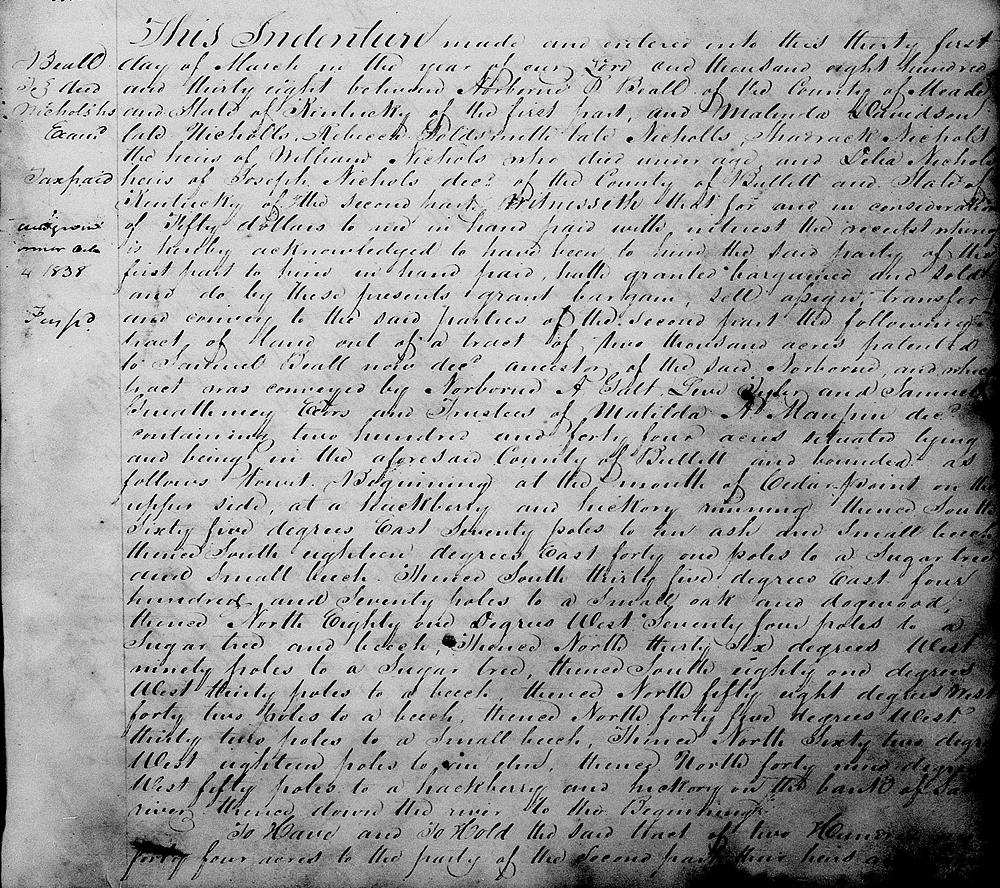 This Indenture made and entered into this thirty first
Beall
To } deed
Nichols hs
Examd
Tax paid
4 1838
day of March in the year of our Lord one thousand eight hundred
and thirty eight between Norborne B Beall of the County of Meade
and State of Kentucky of the first part, and Malinda Davidson
late Nicholls, Rebecca Goldsmith late Nicholls, Shadrack Nichols
the heirs of William Nichols who died under age and Delia Nichols
heirs of Joseph Nichols decd of the County of Bullitt and State of
Kentucky of the second part Witnesseth that for and in consideration
of Fifty dollars to me in hand paid with interest the receipt whereof
is hereby acknowledged to have been to him the said party of the
first part to him in hand paid, hath granted bargained and sold
and do by these presents grant bargain, sell assign, transfer
and convey to the said parties of the second part the following
tract of land out of a tract of two thousand acres patented
to Samuel Beall now decd ancestor of the said Norborne, and which
tract was conveyed by Norborne A Galt, Levi Tyler and Samuel
Smallmey Exrs and Trustees of Matilda A Maupin decd
containing two hundred and forty four acres situated lying
and being in the aforesaid County of Bullitt and bounded as
follows Towit. Beginning at the mouth of Cedar point on the
upper side, at a hackberry and hickory running thence South
Sixty five degrees East Seventy poles to an ash and Small beech
thence South eighteen degrees East forty one poles to a Sugar tree
and Small beech. Thence South thirty five degrees East four
hundred and Seventy poles to a Small oak and dogwood,
thence North Eighty one Degrees West Seventy four poles to a
Sugar tree and beech, Thence North thirty Six degrees West
ninety poles to a Sugar tree, thence South eighty one degrees
West thirty poles to a beech, thence North fifty eight degrees West
forty two poles to a beech, thence North forty five degrees West
thirty two poles to a Small beech, Thence North Sixty two degrees
West eighteen poles to an elm, thence North forty nine degrees
West fifty poles to a hackberry and hickory on the bank of Salt
river, thence down the river to the Beginning.
To Have and To Hold the said tract of two Hundred
forty four acres to the party of the Second part their heirs